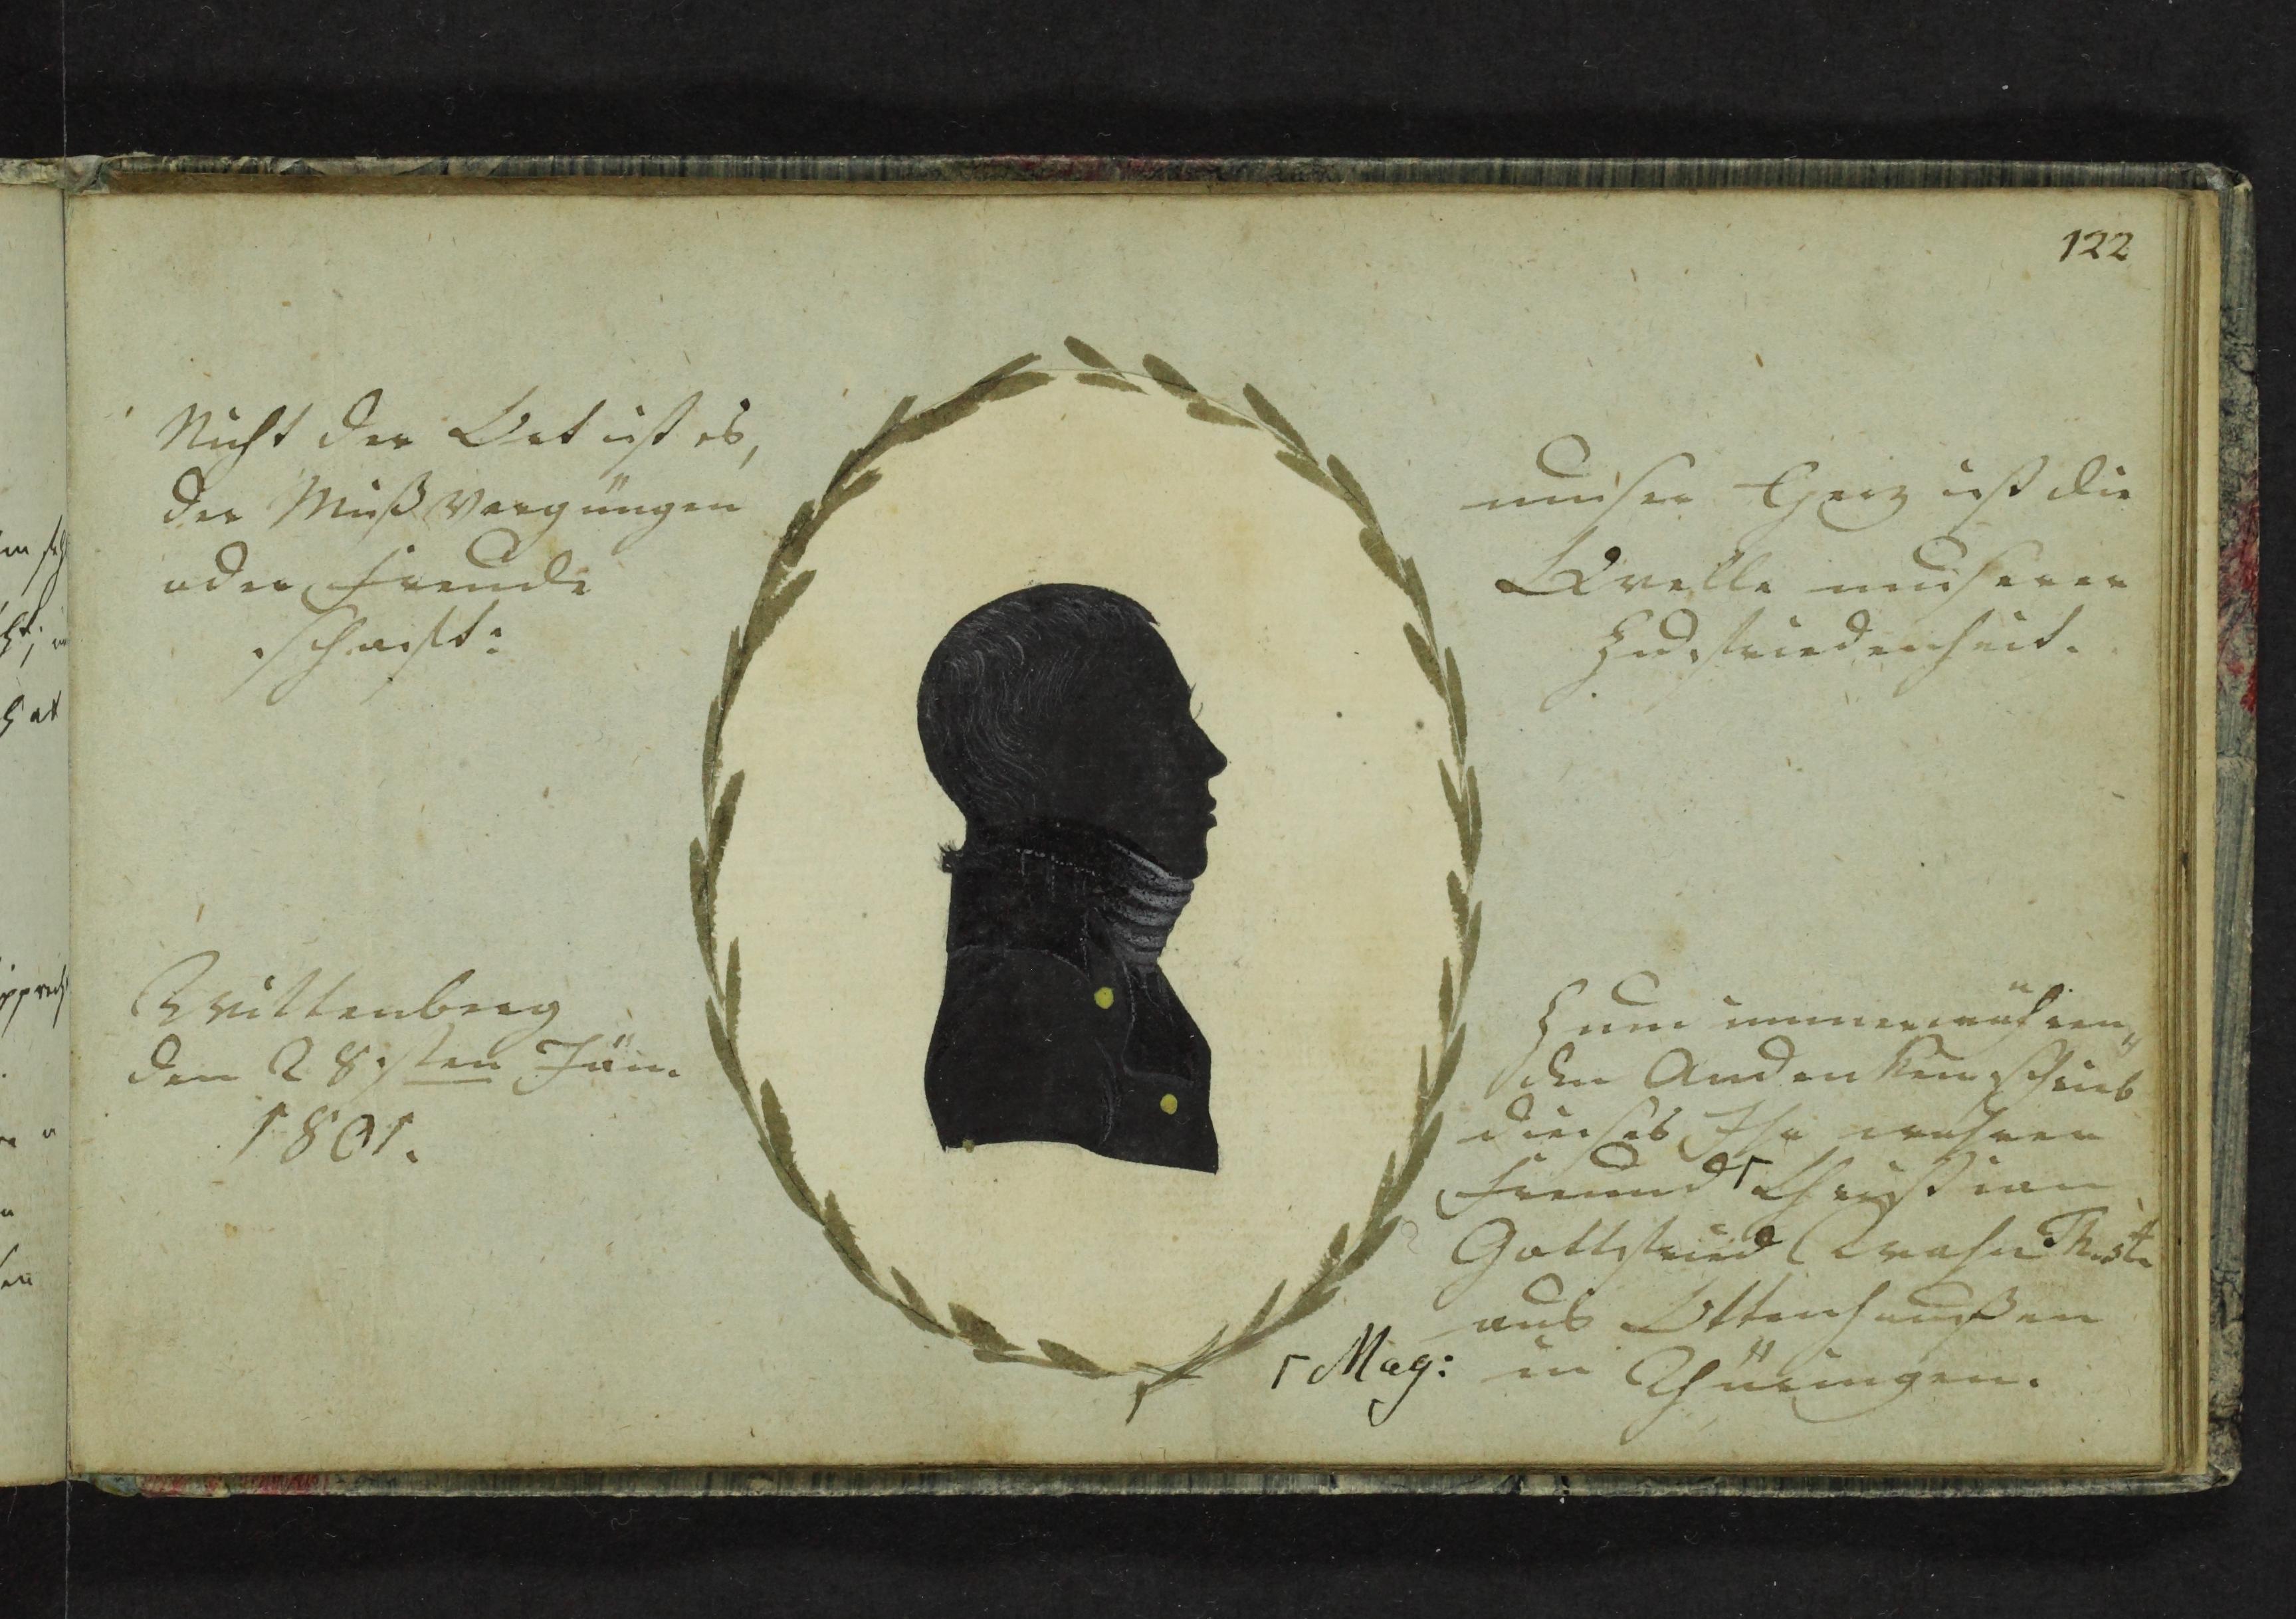 122
Nicht der Ort ist es,
der Mißvergüngen
oder Freude
schaft:
unser Herz ist die
Qvelle unserer
Zufriedenheit.
Wittenberg
den 28sten Jun.
1801.
Zum immerwähren„
den Andenken schrieb
dieses Ihr wahrer
Freund ┌ Christian
Gottfried
aus Ottenhaußen
in Thüringen.
┌ Mag: